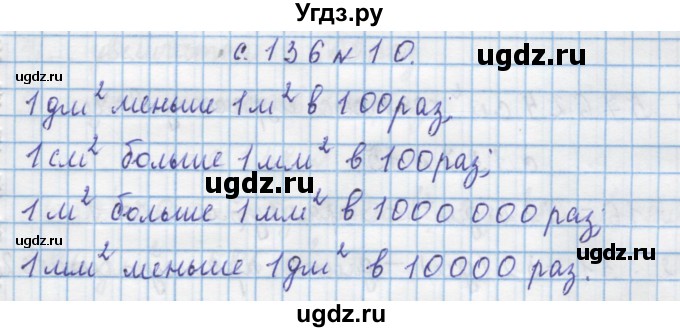 Угдз.ру
с. 136 № 10.
ugdz.ru ugdz.ru
1 дм² меньше 1 м² в 100 раз;
ugdz.ru
1 см² больше 1 мм² в 100 раз;
ugdz.ru
1 м² больше 1 мм² в 1000 000 раз;
ugdz.ru ugdz.ru
1 мм² меньше 1 дм² в 10000 раз.
ugdz.ru